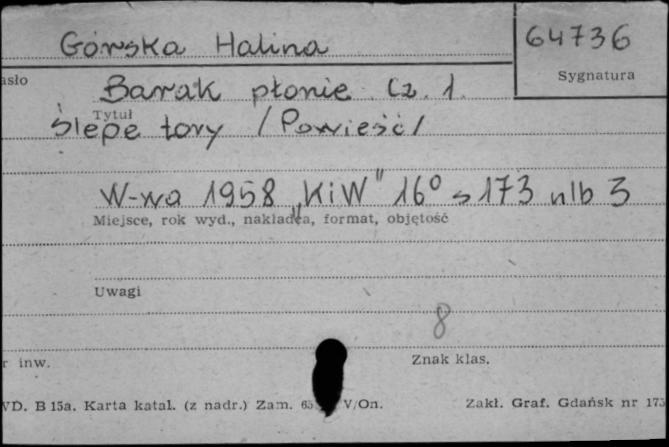 Górska Halina
64736
Sygnatura
asło
Barak płonie Cz. 1.
Tytuł
Ślepe tory /Powieść/
W-wa 1958 „KiW" 16° s 173 nlb 3
Miejsce, rok wyd., nakładca, format, objętość
Uwagi
8
r inw.
Znak klas.
VD. B 15a. Karta katal. (z nadr.) Zam. V/On.
Zakł. Graf. Gdańsk nr 173